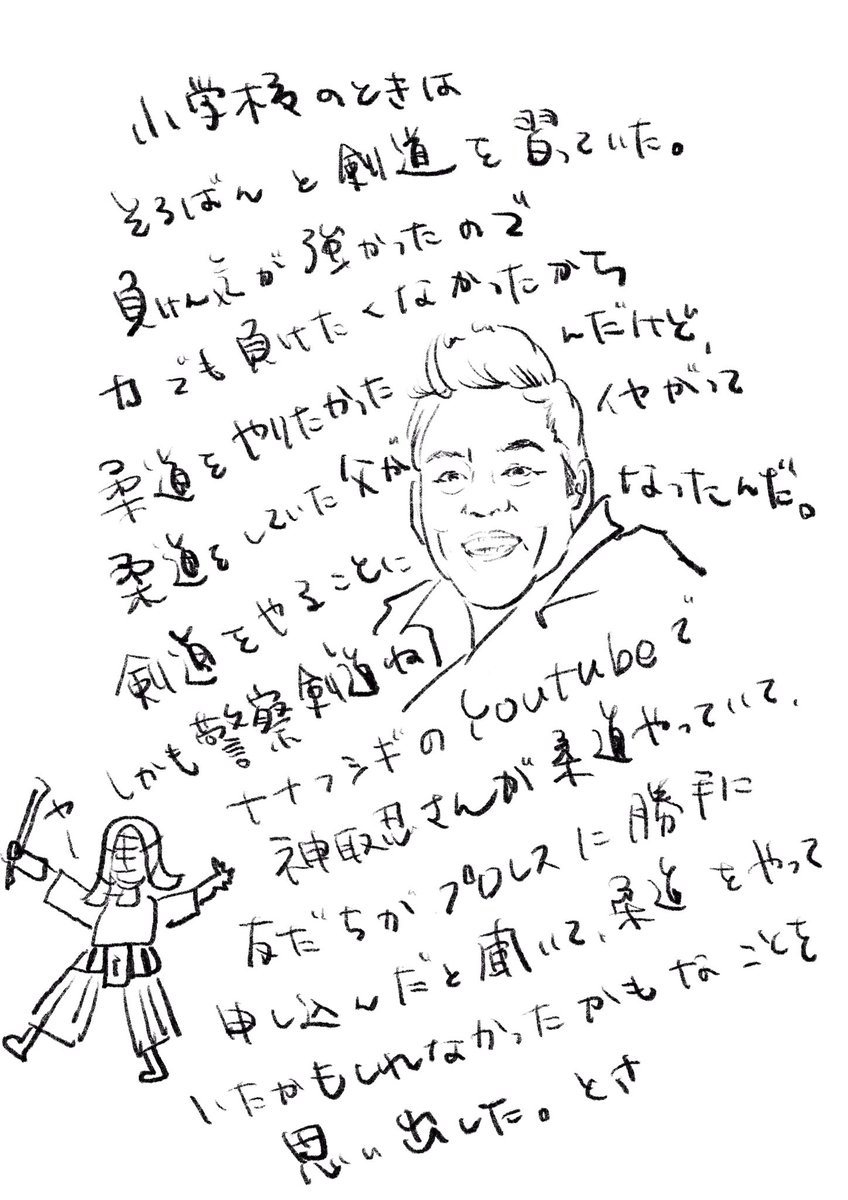 小学校のときは
そろばんと剣道を習っていた。
負けん気が強かったので
力でも負けたくなかったから
柔道をやりたかったんだけど、
柔道をしていた父がイヤがって
剣道をやることになったんだ。
しかも警察剣道ね
ナナフシギのYoutubeで
神取忍さんが柔道やっていて、
友だちがプロレスに勝手に
申し込んだと聞いて、柔道をやって
いたかもしれなかったかもなことを
思い出した。とさ
やー